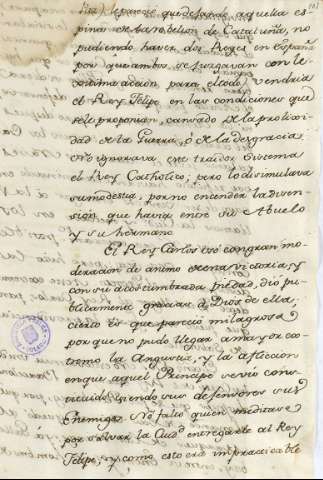 le pareció que dejando aquella es
pina de la rebelion de Cataluña, no
pudiendo haver dos Reyes en España
porque ambos se juzgavan con le
xitima accion, para el todo, vendria
el Rey Felipe, en las condiciones que
se le proponian, cansado de la prolixi
dad de la Guerra, ó de la desgracia
no ignorava este traidor Sistema
el Rey Catholico; pero lo disimulava
su modestia, por no encender la disen
sion que havia entre su Abuelo
y su hermano
El Rey Carlos usó con gran mo
deracion de animo de esta victoria, y
con su acostumbrada piedad, dio pu
blicamente gracias á Dios de ella;
cierto es que pareció milagrosa
porque no pudo llegar a mayor ex
tremo la Angustia, y la afliccion
en que aquel Principe se vió cons
tituido, siendo sus defensores sus
Enemigos No faltó quien meditase
por salvar la Ciud entregarle al Rey
Felipe, y como esto era impracticable